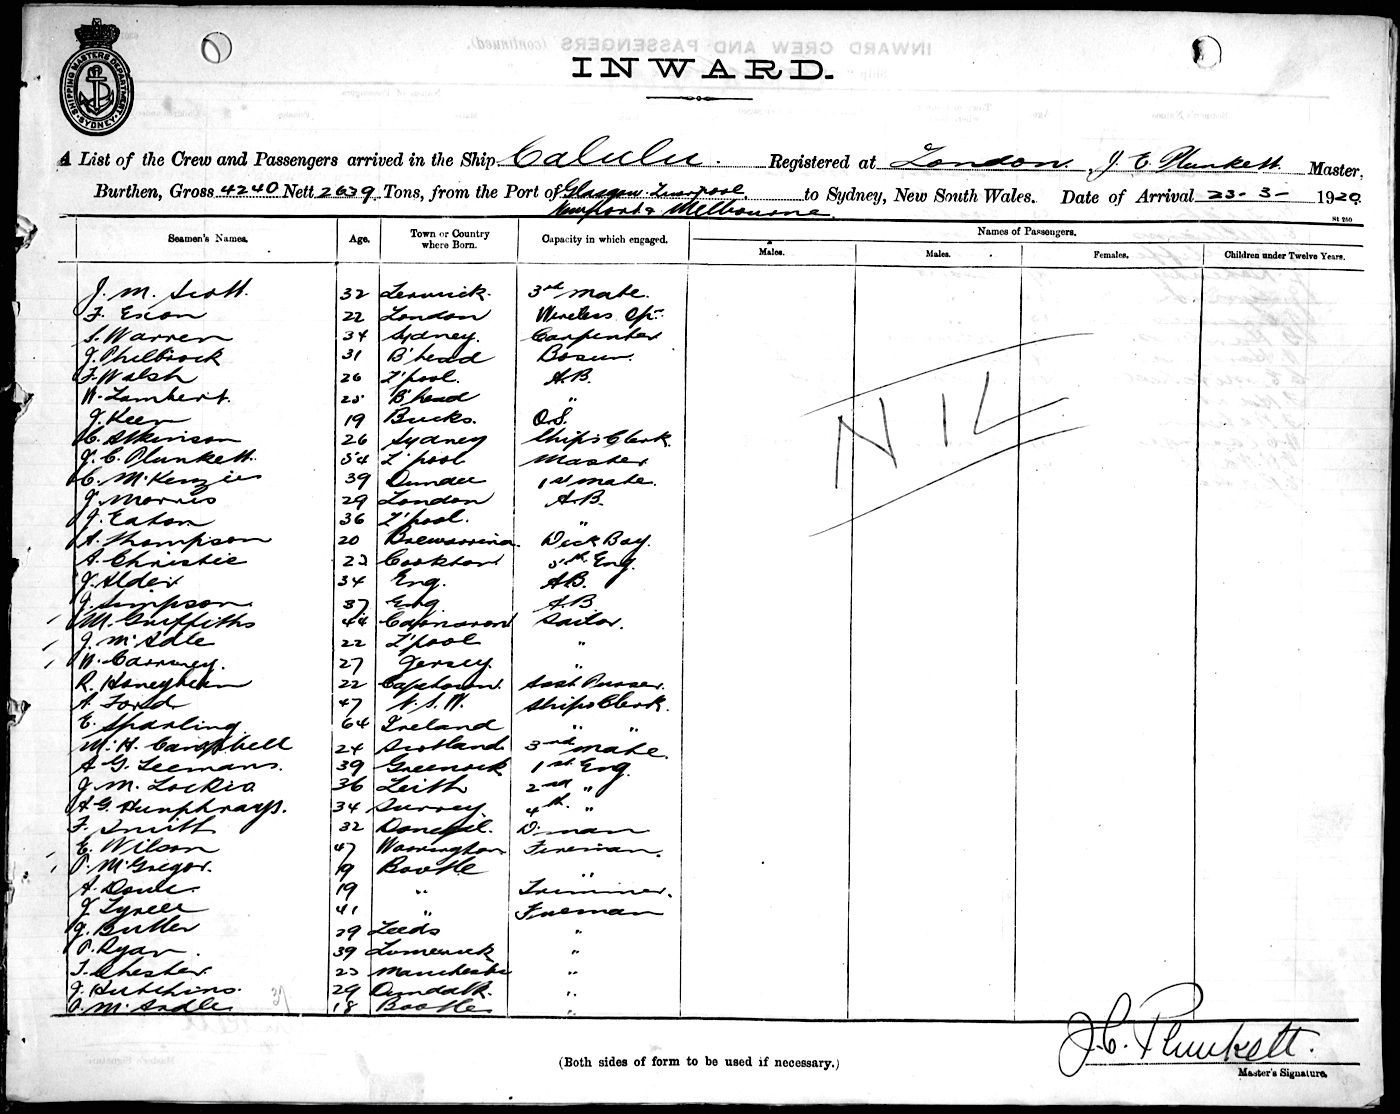 INWARD CREW AND PASSENGERS (continued).
INWARD.
SHIPPING MASTERS DEPARTMENT
SYDNEY
A List of the Crew and Passengers arrived in the Ship Calulu. Registered at London. J. C. Plunkett. Master,
Burthen, Gross 4240 Nett 2639 Tons, from the Port of Glasgow Liverpool to Sydney, New South Wales. Date of Arrival 23-3-1920
Newport & Melbourne.
St 250
Seamen's Names. Age. Town or Country where Born. Capacity in which engaged. Names of Passengers.
Males. Males. Females. Children under Twelve Years.
J. M. Scott. 32 Lerwick. 3rd mate.
F. Exon 22 London Wireless Op.
S. Warren 34 Sydney. Carpenter
J. Philbrock 31 B'head Bosun.
F. Walsh 26 L'pool. A.B.
W. Lambert. B'head "
J. Keen 19 Bucks. O.S.
C. Atkinson 26 Sydney Ship's Clerk.
J. C. Plunkett. 54 L'pool Master
C. McKenzie 39 Dundee 1st mate.
J. Morris 29 London A.B.
J. Eaton 36 L'pool. "
A. Thompson 20 Brewarrina. Deck Boy.
A. Christie 23 Cooktown 5th Eng.
J. Alder 34 Eng. A.B.
J. Simpson. 37 Eng A.B.
M. Griffiths 44 Carnarvon Sailor.
J. McAdle 22 L'pool "
W. 27 Jersey. "
R. Honeybun 22 Capetown. Asst Purser.
A. Ford 47 N.S.W. Ships Clerk.
E. Sparling 64 Ireland " "
M. H. Campbell 24 Scotland 3rd mate.
A G. Leemans. 39 Greenock 1st Eng.
J. M. Lockie 36 Leith 2nd "
A. G. Humphrays. 34 Surrey. 4th. "
F. Smith 32 Donegil. D'man
C. Wilson 47 Warrington Fireman.
P. McGregor. 19 Bootle "
A. 19 " Trimmer.
J. Tyrell 41 " Fireman
J. Butler 29 Leeds "
P. Ryan. 39 Limerick "
T. Chester. 23 Manchester "
J. Hutchins. 29 Dundalk. "
P. McArdle 18 Bootle "
NIL
37
J. C. Plunkett.
(Both sides of form to be used if necessary.)
Master's Signature.